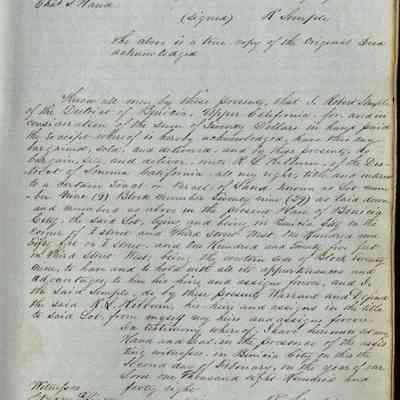 Chas S Hand
(signed) R Semple
The above is a true copy of the original Deed
acknowledged
Know all men by these presents, that I Robert Semple
of the District of Benicia, Upper California, for and in
consideration of the sum of Twenty Dollars in hand paid
the receipt whereof is hereby acknowledged, have this day
bargained, sold, and delivered, and by these presents, do
bargain, sell, and deliver, unto R. L. Kilburn, of the Dis-
trict of Sonoma California, all my right, title and interest
to a certain Tract or Parcel of Land known as Lot num-
ber Nine (9) Block number twenty nine (29) as laid down
and numbered as above in the present Plan of Benicia
City, the said Lot, lying and being in Benicia City on the
corner of E street and Third Street West, One Hundred and
fifty feet on E street, and One Hundred and twenty five feet
on Third Street West, being the western side of Block twenty
nine, to have and to hold with all its appurtenances and
advantages, to him his heirs and assigns forever, and I
the said Semple, do by these presents Warrant and Defend
the said R. L. Kilburn, his heirs and assigns in the title
to said Lot, from myself my heirs and assigns forever.
In testimony whereof, I have hereunto set my
Hand and Seal, in the presence of the assis-
ting witnesses, in Benicia City on this the
Second day of February, in the year of our
Lord one Thousand eight Hundred and
forty eight
Witnesses
R Semple